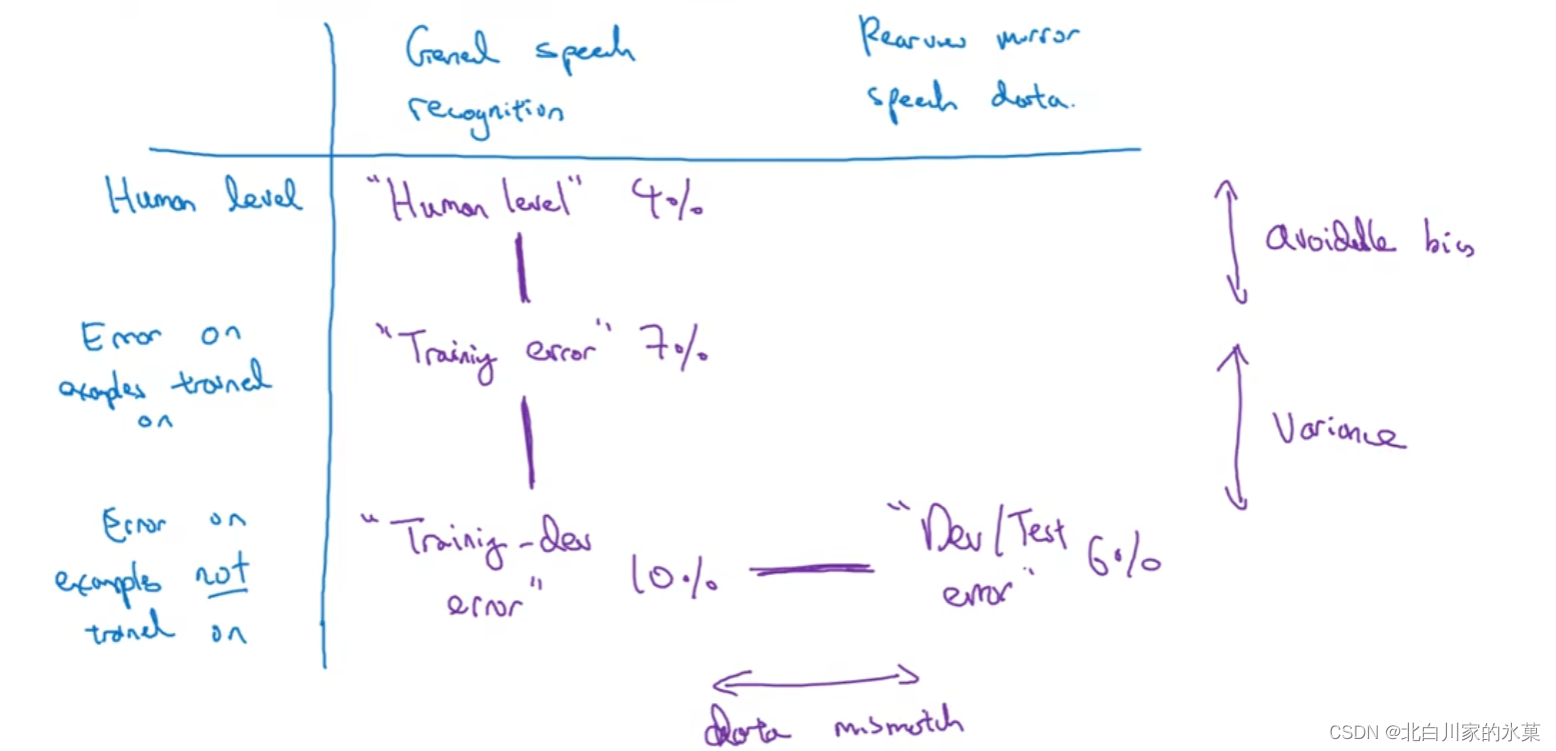 General speech
recognition
Rearview mirror
speech data.
Human level
"Human level" 4%
avoidable bias
Error on
examples trained
on
"Training error" 7%
Variance
Error on
examples not
trained on
"Training-dev
error" 10%
"Dev/Test
error" 6%
data mismatch
CSDN @北白川家的氷菓